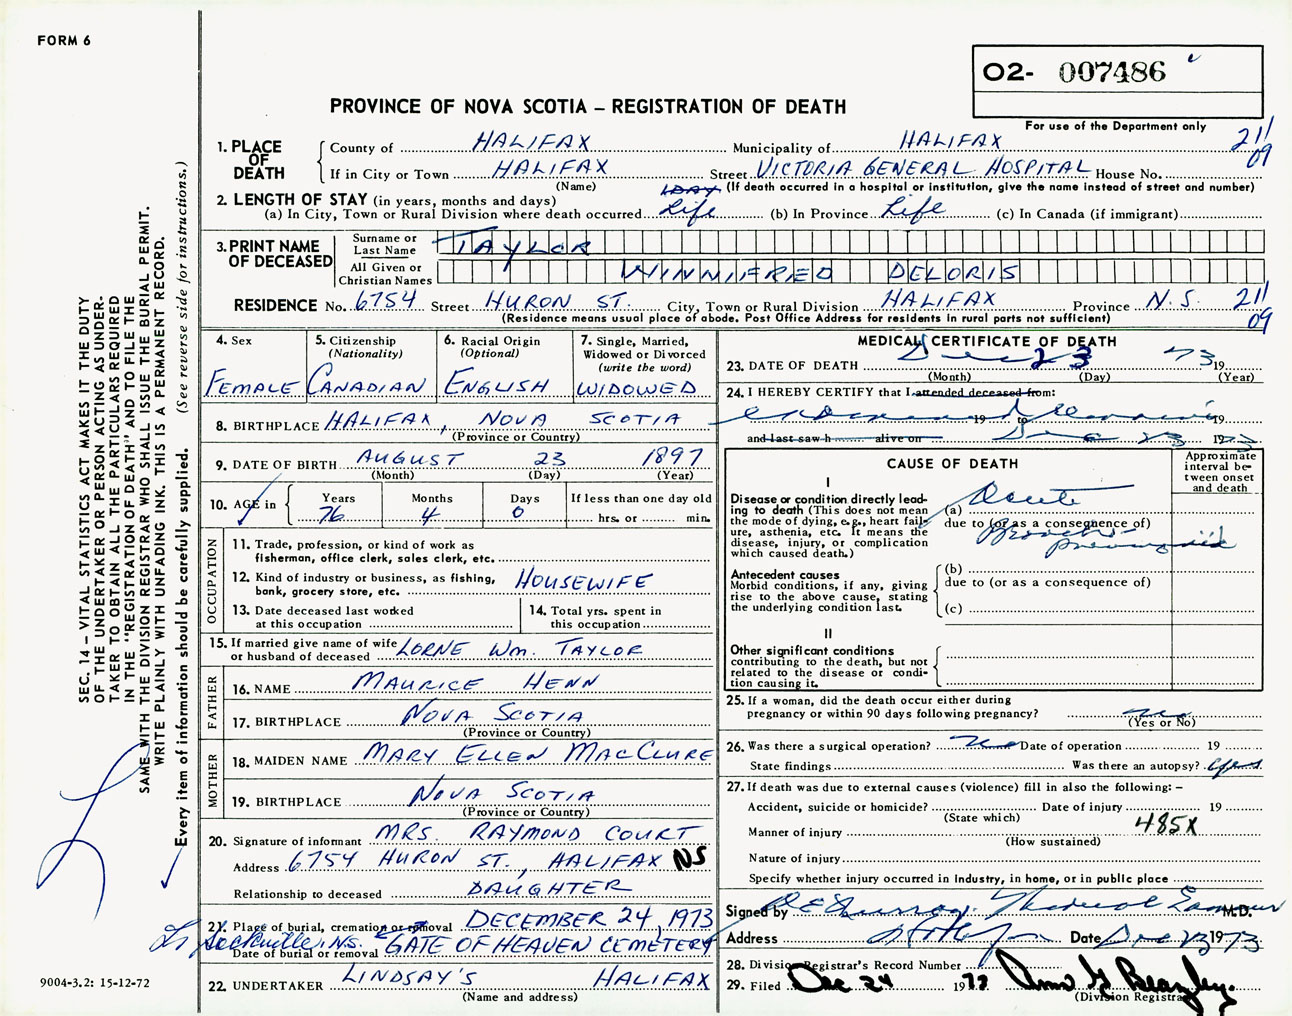 FORM 6
O2- 007486
For use of the Department only
PROVINCE OF NOVA SCOTIA – REGISTRATION OF DEATH
1. PLACE OF DEATH
County of HALIFAX Municipality of HALIFAX 211
If in City or Town HALIFAX Street VICTORIA GENERAL HOSPITAL House No. 09
(Name) 1 DAY (If death occurred in a hospital or institution, give the name instead of street and number)
2. LENGTH OF STAY (in years, months and days)
(a) In City, Town or Rural Division where death occurred Life (b) In Province Life (c) In Canada (if immigrant)
3. PRINT NAME OF DECEASED
Surname or Last Name TAYLOR
All Given or Christian Names WINNIFRED DELORIS
RESIDENCE No. 6754 Street HURON ST. City, Town or Rural Division HALIFAX Province N.S. 211
(Residence means usual place of abode. Post Office Address for residents in rural parts not sufficient) 09
4. Sex FEMALE
5. Citizenship (Nationality) CANADIAN
6. Racial Origin (Optional) ENGLISH
7. Single, Married, Widowed or Divorced (write the word) WIDOWED
8. BIRTHPLACE HALIFAX, NOVA SCOTIA
(Province or Country)
9. DATE OF BIRTH AUGUST 23 1897
(Month) (Day) (Year)
10. AGE in Years 76 Months 4 Days 0 If less than one day old hrs. or min.
OCCUPATION
11. Trade, profession, or kind of work as fisherman, office clerk, sales clerk, etc.
12. Kind of industry or business, as fishing, bank, grocery store, etc. HOUSEWIFE
13. Date deceased last worked at this occupation
14. Total yrs. spent in this occupation
15. If married give name of wife or husband of deceased LORNE WM. TAYLOR
FATHER
16. NAME MAURICE HENN
17. BIRTHPLACE NOVA SCOTIA
(Province or Country)
MOTHER
18. MAIDEN NAME MARY ELLEN MACCLURE
19. BIRTHPLACE NOVA SCOTIA
(Province or Country)
20. Signature of informant MRS. RAYMOND COURT
Address 6754 HURON ST., HALIFAX NS
Relationship to deceased DAUGHTER
21. Place of burial, cremation or removal DECEMBER 24, 1973
Lr Sackville, N.S. Date of burial or removal GATE OF HEAVEN CEMETERY
22. UNDERTAKER LINDSAY'S HALIFAX
(Name and address)
MEDICAL CERTIFICATE OF DEATH
23. DATE OF DEATH Dec 23 73 19
(Month) (Day) (Year)
24. I HEREBY CERTIFY that I attended deceased from:
19 to 19
and last saw h alive on Dec 23 1973
CAUSE OF DEATH
Approximate interval between onset and death
I
Disease or condition directly leading to death (This does not mean the mode of dying, e.g., heart failure, asthenia, etc. It means the disease, injury, or complication which caused death.)
(a) Acute
due to (or as a consequence of)
Broncho-pneumonia
Antecedent causes
Morbid conditions, if any, giving rise to the above cause, stating the underlying condition last.
(b)
due to (or as a consequence of)
(c)
II
Other significant conditions
contributing to the death, but not related to the disease or condition causing it.
25. If a woman, did the death occur either during pregnancy or within 90 days following pregnancy? no
(Yes or No)
26. Was there a surgical operation? no Date of operation 19
State findings Was there an autopsy? yes
27. If death was due to external causes (violence) fill in also the following: –
Accident, suicide or homicide? Date of injury 19
(State which) 485X
Manner of injury
(How sustained)
Nature of injury
Specify whether injury occurred in industry, in home, or in public place
Signed by Medical Examiner M.D.
Address Halifax Date Dec 23 1973
28. Division Registrar's Record Number
29. Filed Dec 24 1973
(Division Registrar)
SEC. 14 – VITAL STATISTICS ACT MAKES IT THE DUTY
OF THE UNDERTAKER OR PERSON ACTING AS UNDER-
TAKER TO OBTAIN ALL THE PARTICULARS REQUIRED
IN THE "REGISTRATION OF DEATH" AND TO FILE THE
SAME WITH THE DIVISION REGISTRAR WHO SHALL ISSUE THE BURIAL PERMIT.
WRITE PLAINLY WITH UNFADING INK. THIS IS A PERMANENT RECORD.
Every item of information should be carefully supplied. (See reverse side for instructions.)
9004-3.2: 15-12-72